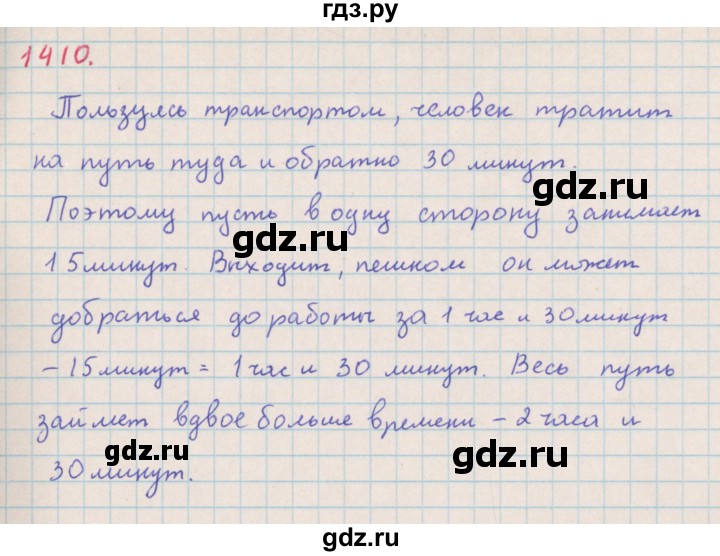 гдз.ру
1410.
Пользуясь транспортом, человек тратит
на путь туда и обратно 30 минут.
gdz.ru
Поэтому пусть в одну сторону занимает
gdz.ru
15 минут. Выходит, пешком он может
добраться до работы за 1 час и 30 минут
gdz.ru
- 15 минут = 1 час и 30 минут. Весь путь
займет вдвое больше времени - 2 часа и
gdz.ru
30 минут.
gdz.ru
gdz.ru